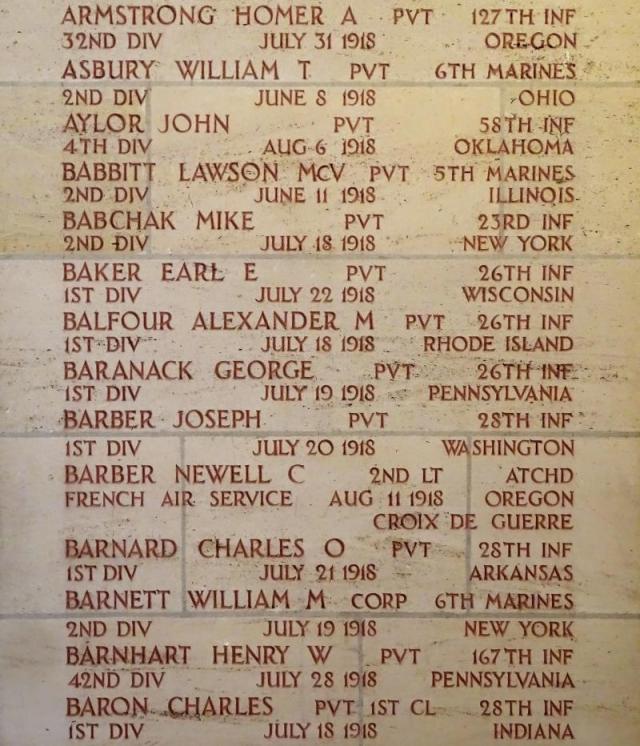 ARMSTRONG HOMER A PVT 127TH INF
32ND DIV JULY 31 1918 OREGON
ASBURY WILLIAM T PVT 6TH MARINES
2ND DIV JUNE 8 1918 OHIO
AYLOR JOHN PVT 58TH INF
4TH DIV AUG 6 1918 OKLAHOMA
BABBITT LAWSON MCV PVT 5TH MARINES
2ND DIV JUNE 11 1918 ILLINOIS
BABCHAK MIKE PVT 23RD INF
2ND DIV JULY 18 1918 NEW YORK
BAKER EARL E PVT 26TH INF
1ST DIV JULY 22 1918 WISCONSIN
BALFOUR ALEXANDER M PVT 26TH INF
1ST DIV JULY 18 1918 RHODE ISLAND
BARANACK GEORGE PVT 26TH INF
1ST DIV JULY 19 1918 PENNSYLVANIA
BARBER JOSEPH PVT 28TH INF
1ST DIV JULY 20 1918 WASHINGTON
BARBER NEWELL C 2ND LT ATCHD
FRENCH AIR SERVICE AUG 11 1918 OREGON
CROIX DE GUERRE
BARNARD CHARLES O PVT 28TH INF
1ST DIV JULY 21 1918 ARKANSAS
BARNETT WILLIAM M CORP 6TH MARINES
2ND DIV JULY 19 1918 NEW YORK
BARNHART HENRY W PVT 167TH INF
42ND DIV JULY 28 1918 PENNSYLVANIA
BARON CHARLES PVT 1ST CL 28TH INF
1ST DIV JULY 18 1918 INDIANA